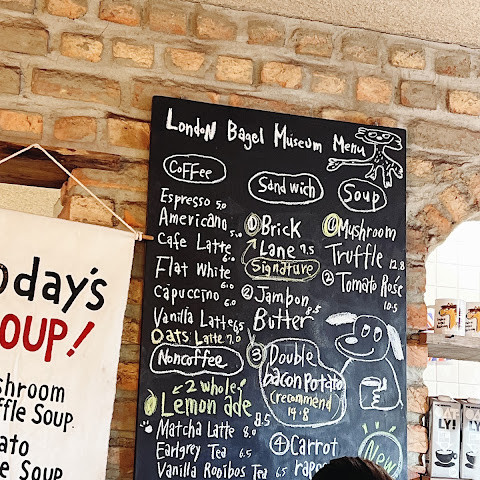 London Bagel Museum Menu
Coffee
Espresso 5.0
Americano 5.0
Cafe Latte 6.0
Flat White 6.0
Capuccino 6.0
Vanilla Latte 6.5
Oats Latte 7.0
Noncoffee
2 whole,
Lemon ade 8.5
Matcha Latte 8.0
Earlgrey Tea 6.5
Vanilla Rooibos Tea 6.5
Sandwich
① Brick
Lane 7.5
Signature
② Jambon 8.5
Butter
③ Double
bacon Potato
(recommend
14.8
④ Carrot
rape
New
Soup
① Mushroom
Truffle 12.8
② Tomato Rosé
10.5
oday's
OUP!
shroom
ffle Soup.
ato
e Soup
LY!
LY!